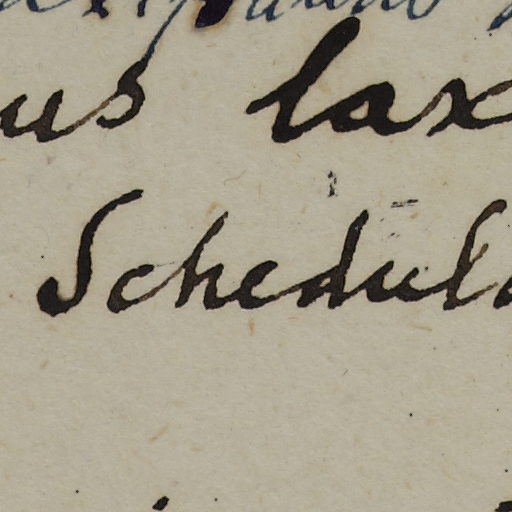 us lax
Schedul